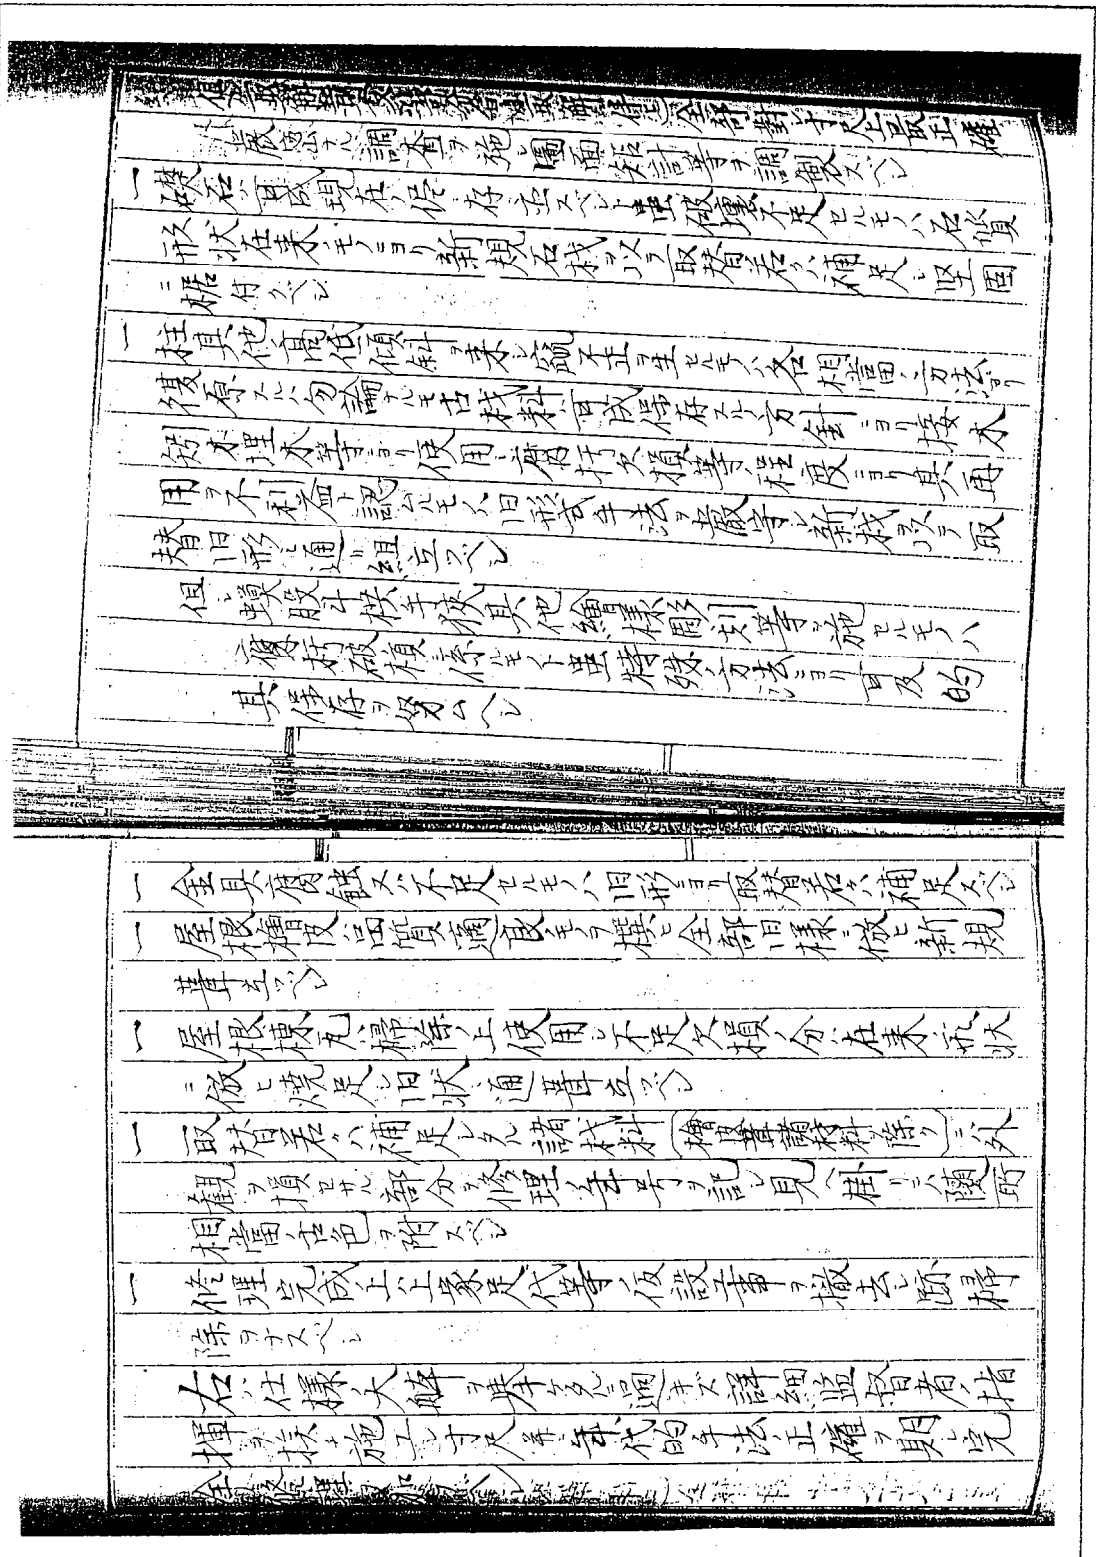 ハ厳密ナル調査ヲ施シ図面
一礎石ハ可成現在ノ侭ノ存在スベシト雖破壊不足セルモノハ石質
形状在来ノモノニヨリ新規石材ヲ以テ取替若クハ補足シ堅固
ニ据付クベシ
一柱其他高低傾斜ヲ来シ不正ヲ生セルモノハ各相当ノ方法ニヨリ
復スルハ勿論ナルモ古材料ハ可成保存スルノ方針ニヨリ接木
矧木埋木等ニヨリ使用シ腐朽欠損等ノ程度ニヨリ其再
用ヲ不利益ト認ムルモノハ旧形式手法ヲ厳守シ新材ヲ以テ取
替旧形ノ通リ組立ツベシ
但シ蟇股斗栱手挟其他絵様彫刻等ヲ施セルモノハ
腐朽破損シ係ルモノト雖特殊ノ方法ニヨリ可及的
其保存ヲ努ムヘシ
一金具腐蝕又ハ不足セルモノハ旧形ニヨリ取替若クハ補足スベシ
一屋根檜皮ハ品質適良ノモノヲ撰ヒ全部旧様ニ倣ヒ新規
葺立ツベシ
一屋根棟瓦ハ掃除ノ上使用シ不足欠損ノ分ハ在来ノ形状
ニ倣ヒ焼足シ旧状ノ通葺立ツベシ
一取替若クハ補足シタル諸材料(檜皮葺諸材料ヲ除ク)ニハ外
観ヲ損セサル部分ヘ修理ノ年号ヲ記シ見ヘ掛リニハ随所
相当ノ古色ヲ附スベシ
一修理完成ノ上ハ上家足代等ノ仮設工事ヲ撤去シ跡掃
除ヲナスベシ
右ハ仕様ノ大体ヲ挙ケタルニ過キズ詳細監督者ノ指
揮ヲ技施工寸尺年代的手法ノ正確ヲ期シ完